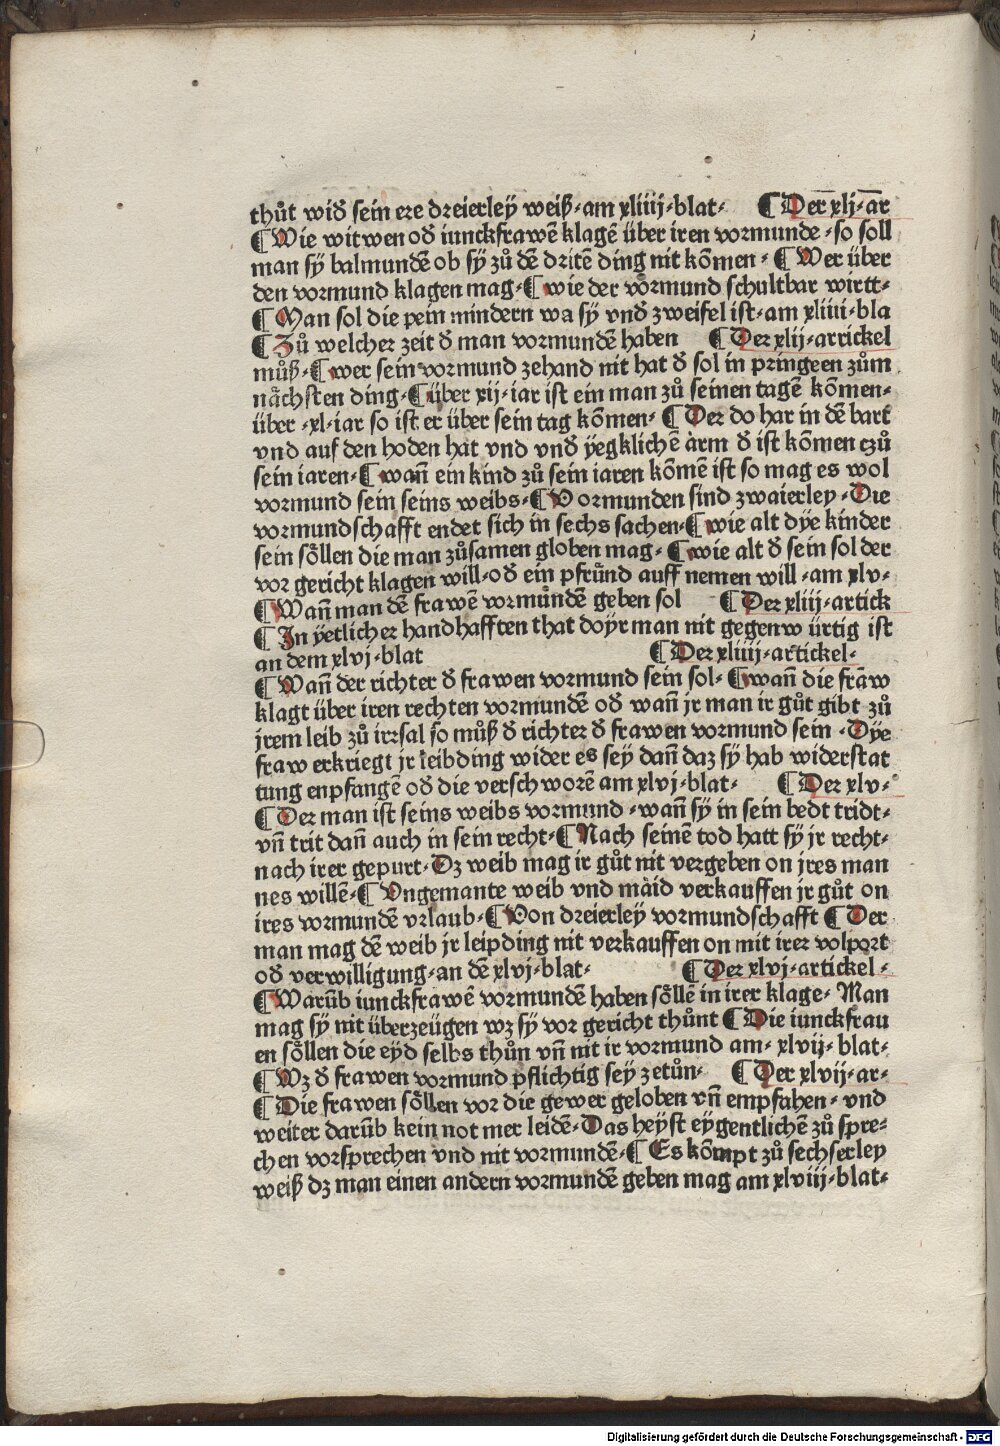 thůt wid sein ere dreierleÿ weiß·am xliiij·blat· ¶Der xlj·ar
¶Wie witwen od iunckfrawē klagē über iren vormunde·so soll
man sÿ balmundē ob sÿ zů dē drite ding nit kōmen·¶Wer über
den vormund klagen mag·¶wie der vormund schultbar wirtt·
¶Man sol die pein mindern wa sÿ vnd zweifel ist·am xliiii·bla
¶Zů welcher zeit d man vormundē haben ¶Der xlij·artickel
můß·¶wer sein vormund zehand nit hat d sol in pringeen zům
nächsten ding·¶über xij·iar ist ein man zů seinen tagē kōmen·
über·xl·iar so ist er über sein tag kōmen·¶Der do har in dē bart
vnd auf den hoden hat vnd vnd ÿegklichē arm d ist kōmen czů
sein iaren·¶wañ ein kind zů sein iaren kōmē ist so mag es wol
vormund sein seins weibs·¶Vormunden sind zwaierley·Die
vormundschafft endet sich in sechs sachen·¶wie alt dÿe kinder
sein söllen die man zůsamen globen mag·¶wie alt d sein sol der
vor gericht klagen will·od ein pfründ auff nemen will·am xlv·
¶Wañ man dē frawē vormündē geben sol ¶Der xliij·artick
¶In ÿetlicher handhafften that do ÿr man nit gegenwürtig ist
an dem xlvj·blat ¶Der xliiij·artickel·
¶Wañ der richter d frawen vormund sein sol·¶wañ die fraw
klagt über iren rechten vormundē od wañ jr man ir gůt gibt zů
jrem leib zů irrsal so můß d richter d frawen vormund sein·Dÿe
fraw erkriegt jr leibding wider es sey dañ daz sÿ hab widerstat
tung enpfangē od die verschworē am xlvj·blat· ¶Der xlv·
¶Der man ist seins weibs vormund·wañ sÿ in sein bedt tridt·
vñ trit dañ auch in sein recht·¶Nach seinē tod hatt sÿ jr recht·
nach irer gepurt·Dz weib mag ir gůt nit vergeben on jres man
nes willē·¶Vngemante weib vnd maid verkauffen jr gůt on
ires vormundē vrlaub·¶Von dreierley vormundschafft ¶Der
man mag dē weib jr leipding nit verkauffen on mit irer volport
od verwilligung·an dē xlvj·blat· ¶Der xlvj·artickel·
¶Warūb iunckfrawē vormundē haben söllē in irer klage·Man
mag sÿ nit überzeügen wz sÿ vor gericht thůnt ¶Die iunckfrau
en söllen die eÿd selbs thůn vñ nit ir vormund am·xlvij·blat·
¶Wz d frawen vormund pflichtig seÿ zetůn· ¶Der xlvij·ar·
¶Die frawen söllen vor die gewer geloben vñ empfahen·vnd
weiter darūb kein not mer leidē·Das heÿst eÿgentlichē zů spre-
chen vorsprechen vnd nit vormundē·¶Es kōmpt zů sechserley
weiß dz man einen andern vormundē geben mag am xlviij·blat·
Digitalisierung gefördert durch die Deutsche Forschungsgemeinschaft - DFG